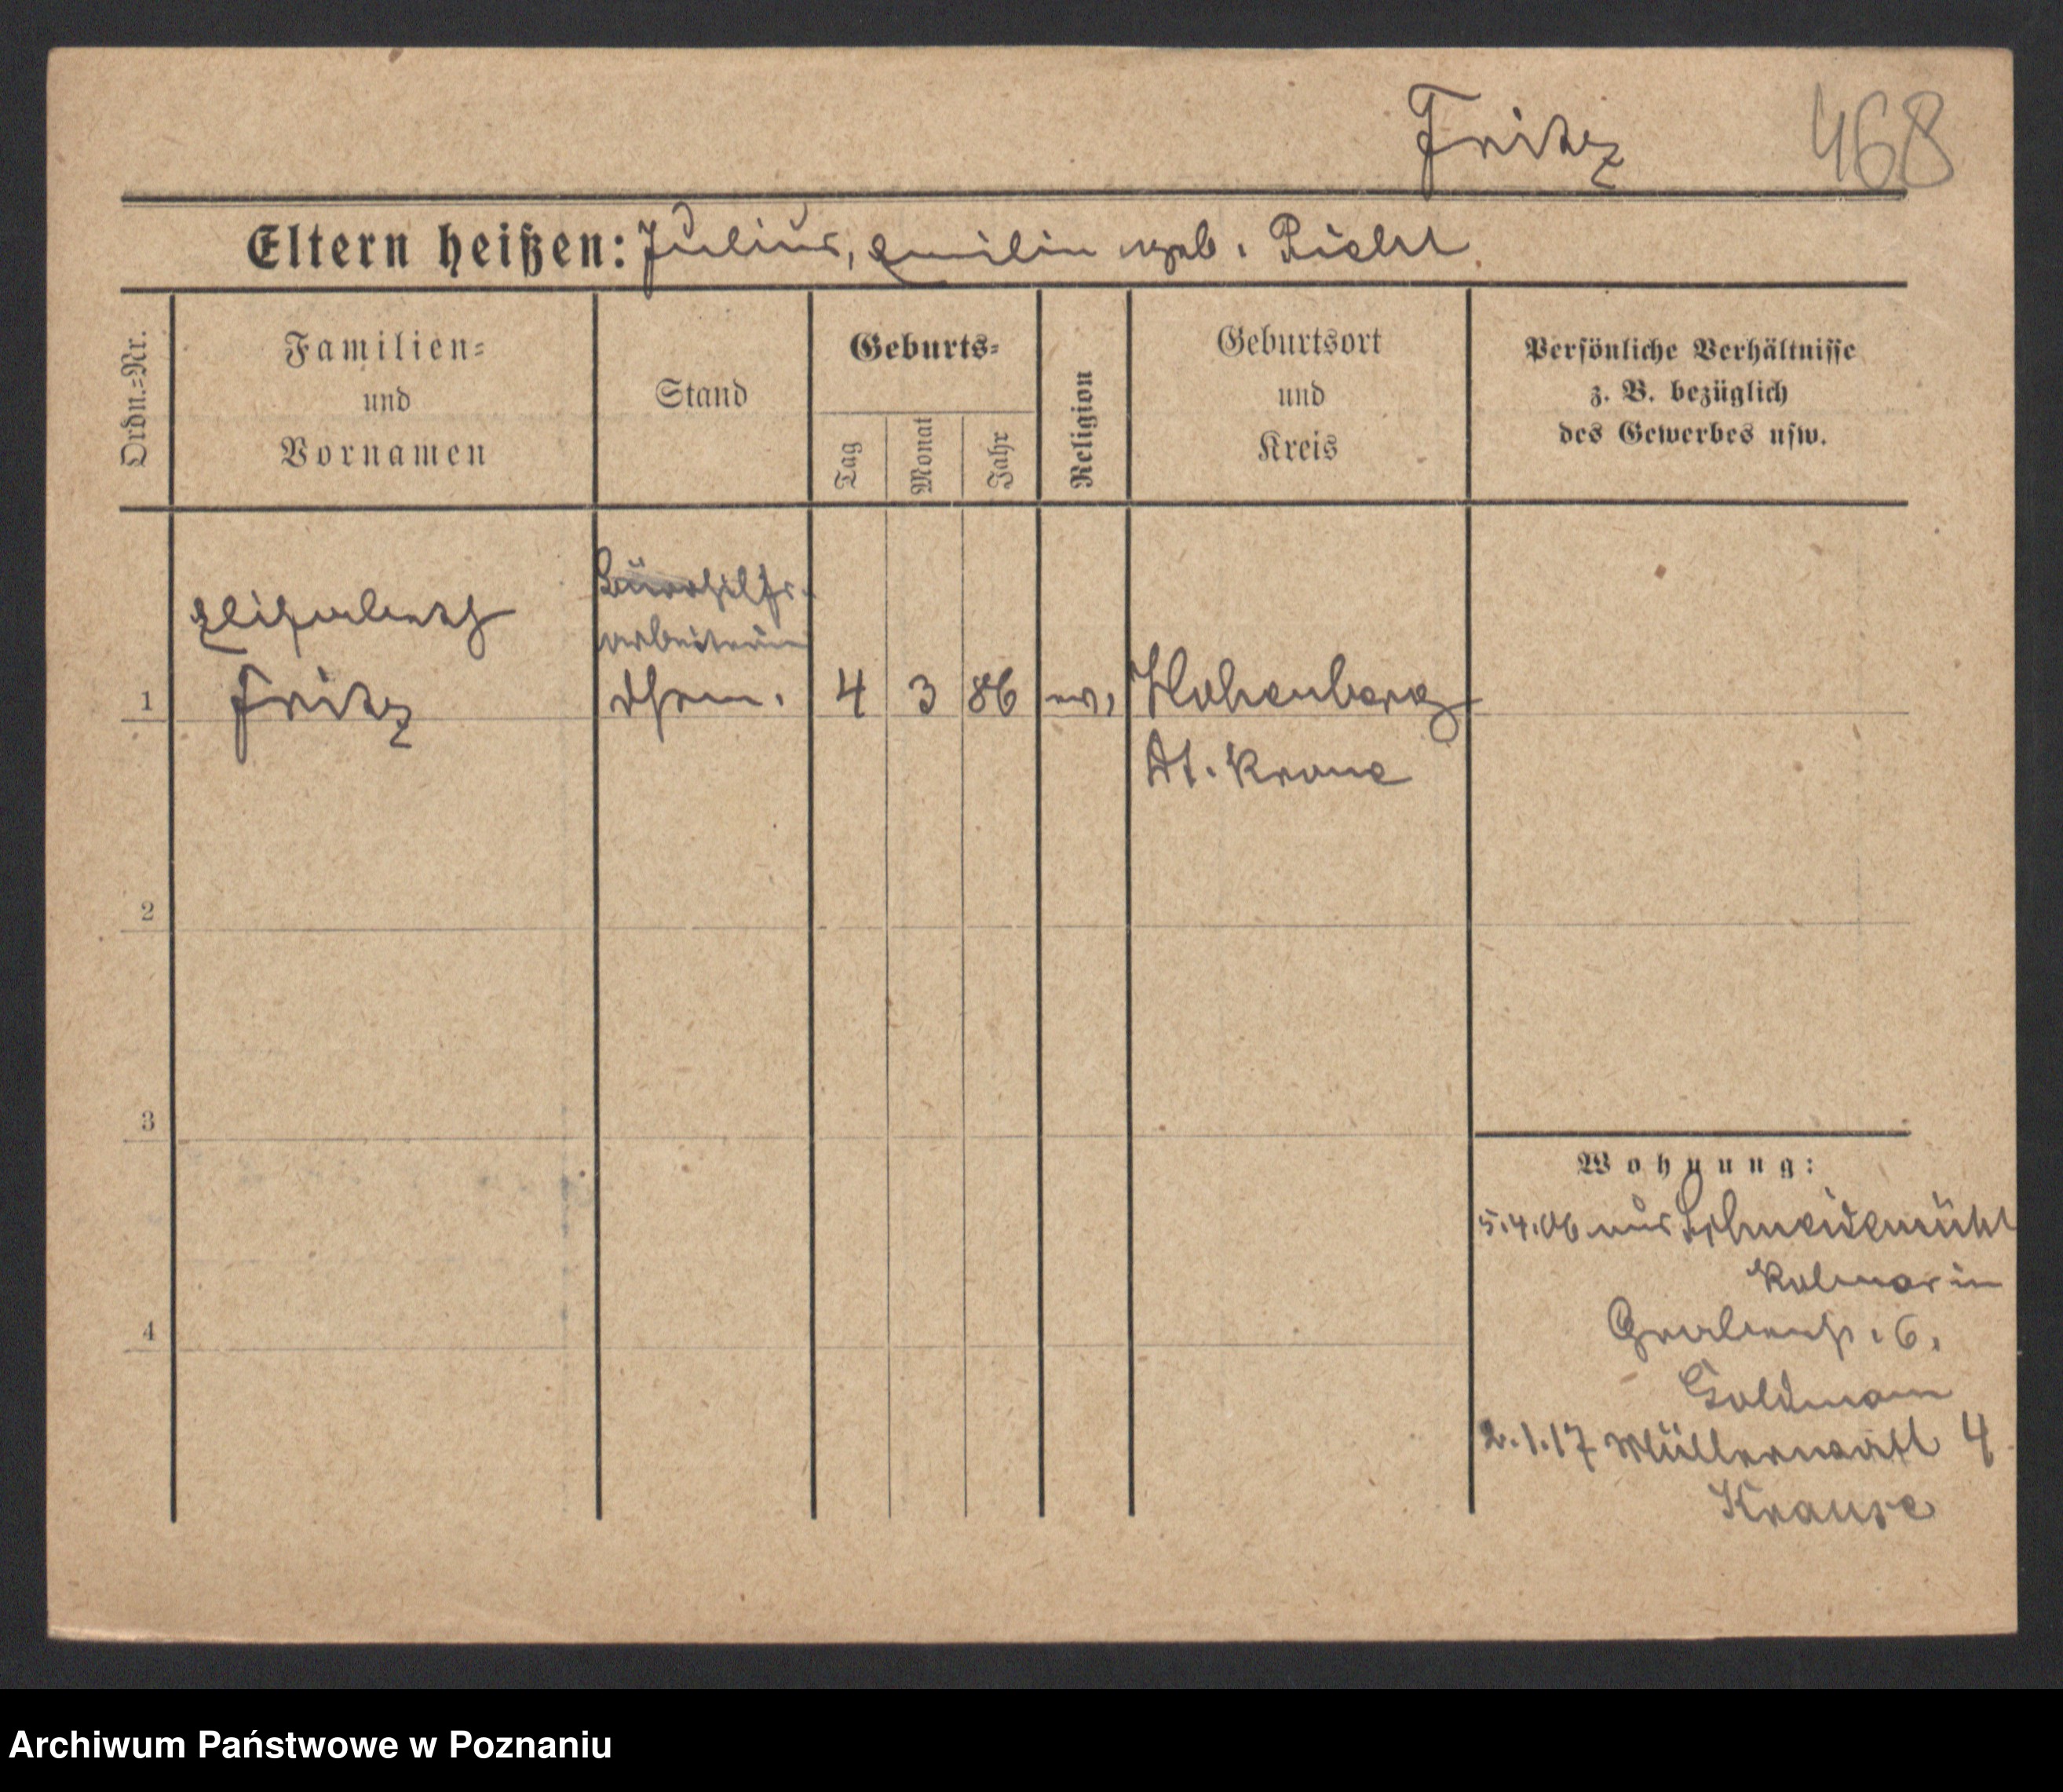 Fritz 468
Eltern heißen: Julius, Emilie geb. Richt
Ordn.-Nr.
Familien-
und
Vornamen
Stand
Geburts-
Tag
Monat
Jahr
Religion
Geburtsort
und
Kreis
Persönliche Verhältnisse
z. B. bezüglich
des Gewerbes usw.
Bürohilfs-
arbeiterin
Elisabeth
1 Fritz 4 3 86 ev. Hohenberg
Dt. Krone
2
3
4
Wohnung:
5.4.06 aus Schneidemühl
Kolmar in
Grabenstr. 6.
Goldmann
2.1.17 Müllerwaisl 4
Krause
Archiwum Państwowe w Poznaniu